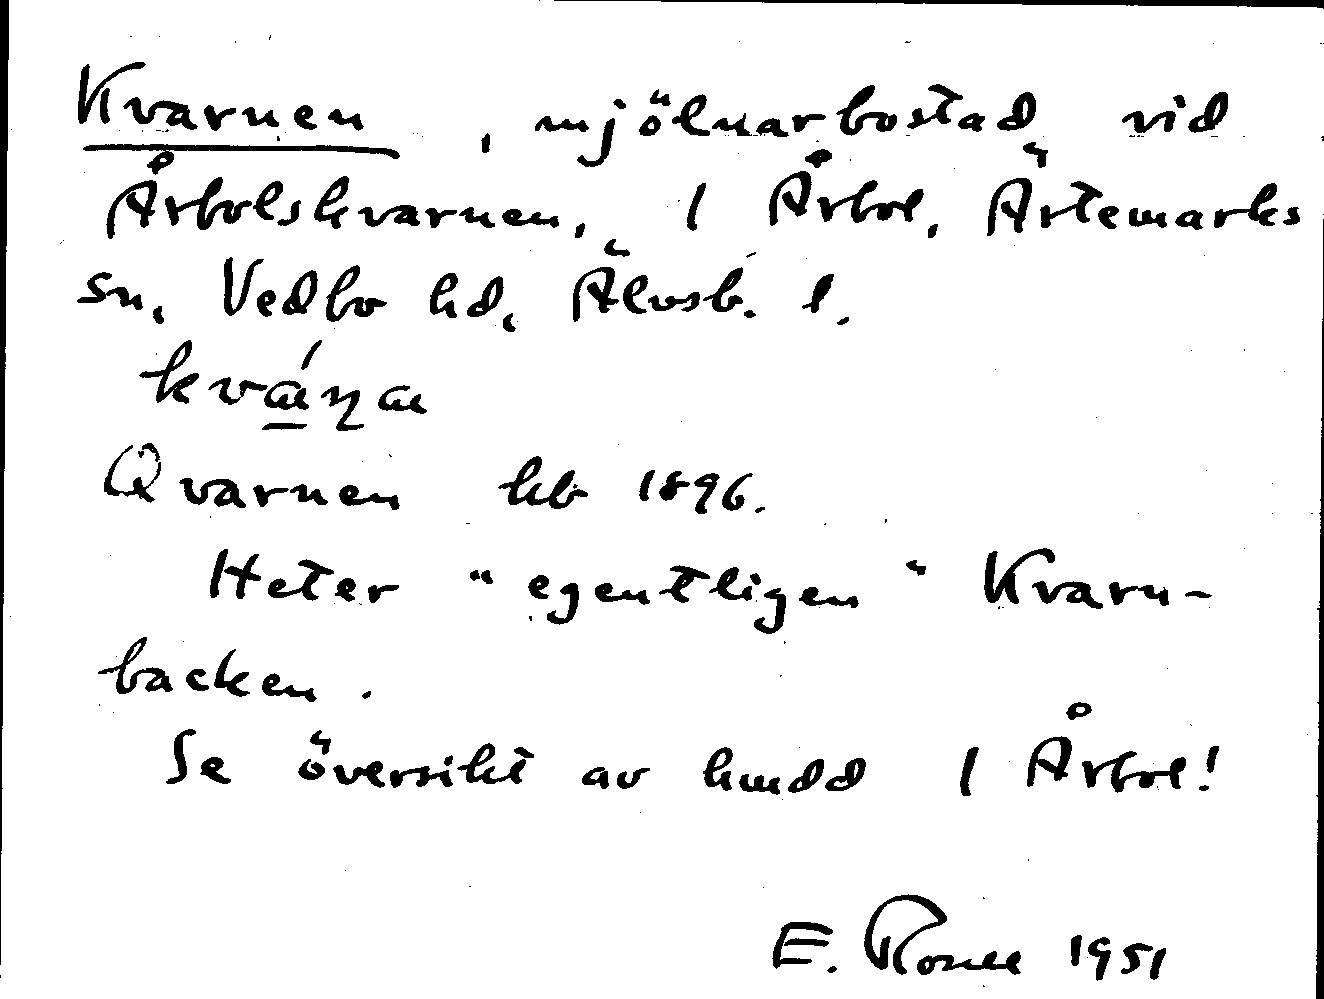 Kvarnen, mjölnarbostad vid
Årbolskvarnen, 1 Årbol, Ärtemarks
sn, Vedbo hd, Älvsb. l.
Qvarnen hb 1896.
Heter "egentligen" Kvarn-
backen.
Se översikt av hmdd 1 Årbol!
E. 1951